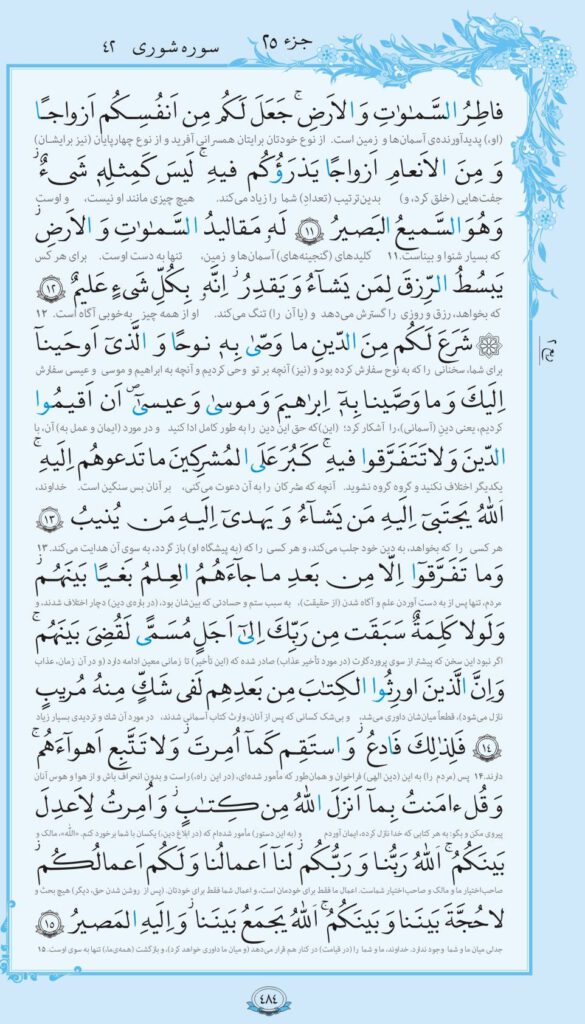 جزء ۲۵
سوره شوری ۴۲
فاطِرُ السَّمٰوٰتِ وَ الاَرضِ ۚ جَعَلَ لَكُم مِن اَنفُسِكُم اَزواجًا
(او،) پدیدآورنده‌ی آسمان‌ها و زمین است. از نوع خودتان برایتان همسرانی آفرید و از نوع چهارپایان (نیز برایشان)
وَ مِنَ الاَنعامِ اَزواجًا يَذرَؤُكُم فيهِ ۚ لَيسَ كَمِثلِهٖ شَىءٌ ۖ
جفت‌هایی (خلق کرد، و) بدین‌ترتیب (تعداد) شما را زیاد می‌کند. هیچ چیزی مانند او نیست، و اوست
وَهُوَ السَّميعُ البَصيرُ ۝۱۱ لَهٗ مَقاليدُ السَّمٰوٰتِ وَ الاَرضِ ۖ
که بسیار شنوا و بیناست. ۱۱ کلیدهای (گنجینه‌های) آسمان‌ها و زمین، تنها به دست اوست. برای هر کس
يَبسُطُ الرِّزقَ لِمَن يَشاءُ وَ يَقدِرُ ۚ اِنَّهٗ بِكُلِّ شَىءٍ عَليمٌ ۝۱۲
که بخواهد، رزق و روزی را گسترش می‌دهد و (یا آن را) تنگ می‌کند. او از همه چیز به‌خوبی آگاه است. ۱۲
۞ شَرَعَ لَكُم مِنَ الدّينِ ما وَصّىٰ بِهٖ نوحًا وَ الَّذى اَوحَينا
برای شما، سخنانی را که به نوح سفارش کرده بود و (نیز) آنچه بر تو وحی کردیم و آنچه به ابراهیم و موسی و عیسی سفارش
اِلَيكَ وَ ما وَصَّينا بِهٖ اِبراهيمَ وَ موسىٰ وَ عيسىٰ ۖ اَن اَقيمُوا
کردیم، یعنی دینِ (آسمانی)، را آشکار کرد؛ (این) که حق این دین را به طور کامل ادا کنید و در مورد (ایمان و عمل به) آن، با
الدّينَ وَ لا تَتَفَرَّقوا فيهِ ۚ كَبُرَ عَلَى المُشرِكينَ ما تَدعوهُم اِلَيهِ ۚ
یکدیگر اختلاف نکنید و گروه گروه نشوید. آنچه که مشرکان را به آن دعوت می‌کنی، بر آنان بس سنگین است. خداوند،
اَللّٰهُ يَجتَبى اِلَيهِ مَن يَشاءُ وَ يَهدى اِلَيهِ مَن يُنيبُ ۝۱۳
هر کسی را که بخواهد، به دین خود جلب می‌کند، و هر کسی را که (به پیشگاه او) باز گردد، به سوی آن هدایت می‌کند. ۱۳
وَ ما تَفَرَّقوا اِلّا مِن بَعدِ ما جاءَهُمُ العِلمُ بَغيًا بَينَهُم ۚ
مردم، تنها پس از به دست آوردن علم و آگاه شدن (از حقیقت)، به سبب ستم و حسادتی که بین‌شان بود، (در باره‌ی دین) دچار اختلاف شدند، و
وَ لَولا كَلِمَةٌ سَبَقَت مِن رَبِّكَ اِلىٰ اَجَلٍ مُسَمًّى لَقُضِىَ بَينَهُم ۚ
اگر نبود این سخن که پیشتر از سوی پروردگارت (در مورد تأخیر عذاب) صادر شده که (این تأخیر) تا زمانی معین ادامه دارد (و در آن زمان، عذاب
وَ اِنَّ الَّذينَ اورِثُوا الكِتٰبَ مِن بَعدِهِم لَفى شَكٍّ مِنهُ مُريبٍ
نازل می‌شود)، قطعاً میان‌شان داوری می‌شد، و بی‌شک کسانی که پس از آنان، وارث کتاب آسمانی شدند، در مورد آن شک و تردیدی بسیار زیاد
۝۱۴ فَلِذٰلِكَ فَادعُ ۖ وَ استَقِم كَما اُمِرتَ ۖ وَ لا تَتَّبِع اَهواءَهُم ۖ
دارند. ۱۴ پس (مردم را) به این (دین الهی) فراخوان و همان‌طور که مأمور شده‌ای، (در این راه،) راست و بدون انحراف باش و از هوا و هوس آنان
وَ قُل ءامَنتُ بِما اَنزَلَ اللّٰهُ مِن كِتٰبٍ ۖ وَ اُمِرتُ لِاَعدِلَ
پیروی مکن و بگو: به هر کتابی که خدا نازل کرده، ایمان آوردم و (به این دستور) مأمور شده‌ام که (در ابلاغ دین،) یکسان با شما برخورد کنم. «اللّه»، مالک و
بَينَكُمُ ۖ اَللّٰهُ رَبُّنا وَ رَبُّكُم ۖ لَنا اَعمالُنا وَ لَكُم اَعمالُكُم ۖ
صاحب‌اختیار ما و مالک و صاحب‌اختیار شماست. اعمال ما فقط برای خودمان است، و اعمال شما فقط برای خودتان. (پس از روشن شدن حق، دیگر) هیچ بحث و
لا حُجَّةَ بَينَنا وَ بَينَكُمُ ۖ اَللّٰهُ يَجمَعُ بَينَنا ۖ وَ اِلَيهِ المَصيرُ ۝۱۵
جدلی میان ما و شما وجود ندارد. خداوند، ما و شما را (در قیامت) در کنار هم قرار می‌دهد (و میان ما داوری خواهد کرد)، و بازگشت (همه‌ی ما)، تنها به سوی اوست. ۱۵
۴۸۴